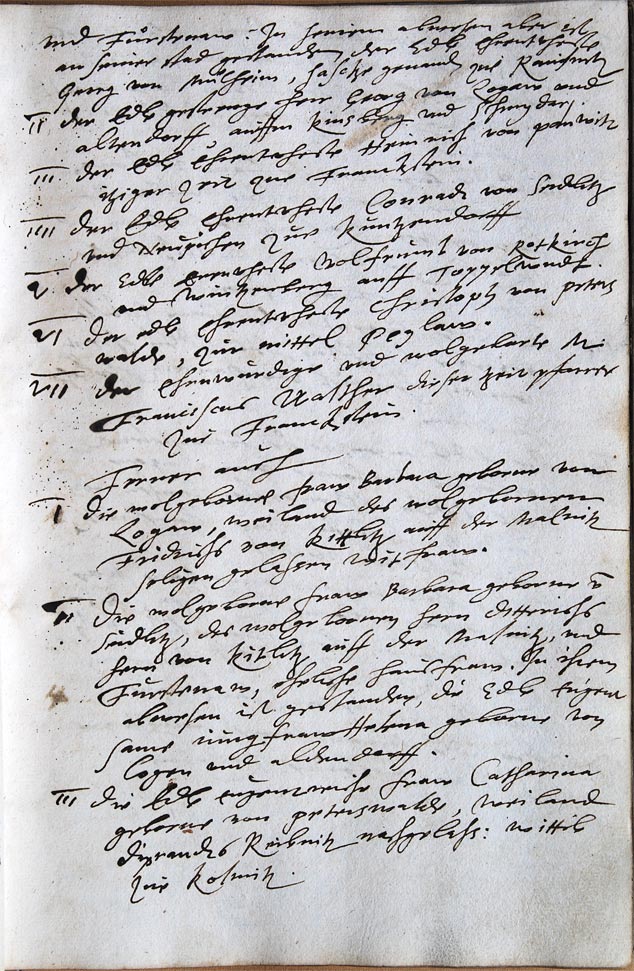 und Fürstenaw. In seinem abwesen aber ist
an seiner stad gestanden der Edle Ehrentveste
Georg von Mülheim, genand zue
II der Edle gestrenge Herr Georg von Logaw und
altendorff auffm Kinsberg und
III der Edle Ehrentveste Heinrich von panwitz
itziger Zeit zue Franckstein.
IIII der Edle Ehrentveste Conradt von Sedlitz
und zue Kuntzendorff
V der Edle Erenveste Wolfrumb von Rotkirch
und auff
VI der edle Ehrentveste Christoph von peters
walde, zur mittel Peylaw.
VII der Ehrwürdige und wolgelarte M.
Franciscus Walther dieser zeit pfarrer
zue Franckstein.
Ferner auch
I die wolgeborne fraw Barbara geborne von
Logaw, weiland des wolgebornen
Fridrichs von Kittlitz auff der Malnitz
seligen gelassen witfraw.
II die wolgeborne fraw Barbara geborne v
Sedlitz, des wolgebornen hern ditterichs
hern von Kitlitz auff der Malnitz, und
Fürstenaw, eheliche hausfraw. In ihrem
abwesen ist gestanden, die Edle tugent
same jungfraw Helena geborne von
Logen und aldendorff.
III die Edle tugentreiche fraw Catharina
geborne von peterswalde, weiland
Reibnitz nachgelass: wittib
zue